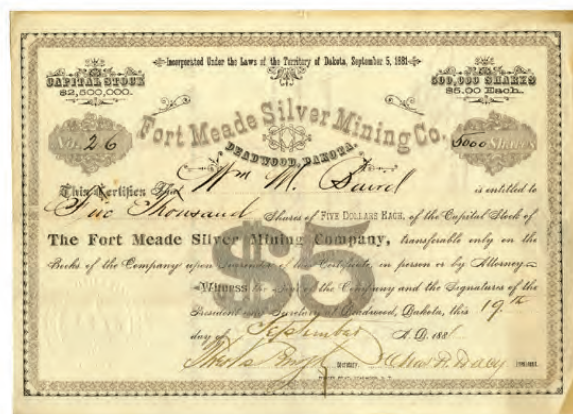 Incorporated Under the Laws of the Territory of Dakota, September 5, 1881
CAPITAL STOCK
$2,500,000.
500,000 SHARES
$5.00 Each.
Fort Meade Silver Mining Co.
DEADWOOD, DAKOTA.
No. 26
5000 Shares
This Certifies That Wm M. David is entitled to
Five Thousand Shares of FIVE DOLLARS EACH, of the Capital Stock of
The Fort Meade Silver Mining Company, transferable only on the
Books of the Company upon Surrender of this Certificate in person or by Attorney
$5
Witness the Seal of the Company and the Signatures of the
President and Secretary at Deadwood, Dakota, this 19th
day of September A.D. 1881
Secretary